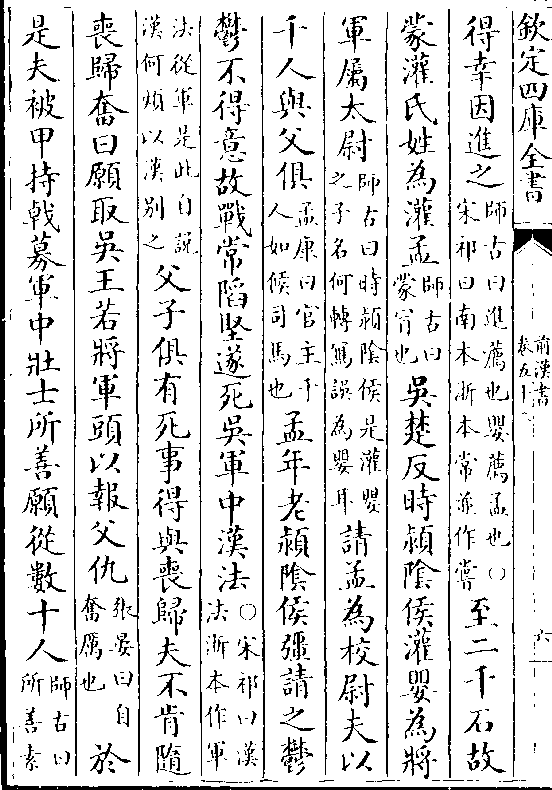 欽定四庫全書
前漢書
卷五十二
六
得幸因進之師古曰進薦也嬰薦孟也○宋祁曰南本浙本常並作嘗至二千石故
蒙灌氏姓為灌孟師古曰蒙冒也吳楚反時潁陰侯灌嬰為將
軍屬太尉師古曰時潁陰侯是灌嬰之子名何轉寫誤為嬰耳請孟為校尉夫以
千人與父俱孟康曰官主千人如候司馬也孟年老潁陰侯彊請之鬱
鬱不得意故戰常陷堅遂死吳軍中漢法○宋祁曰漢法浙本作軍
法從軍是此自說漢何煩以漢別之父子俱有死事得與喪歸夫不肯隨
喪歸奮曰願取吳王若將軍頭以報父仇張晏曰自奮厲也於
是夫被甲持戟募軍中壯士所善願從數十人師古曰所善素